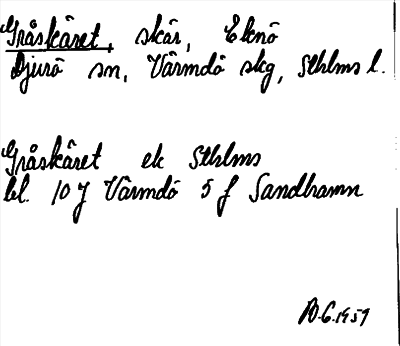 Gråskäret, skär, Eknö
Djurö sn, Värmdö skg, Sthlms l.
Gråskäret ek Sthlms
bl. 10 J Värmdö 5 f Sandhamn
1951